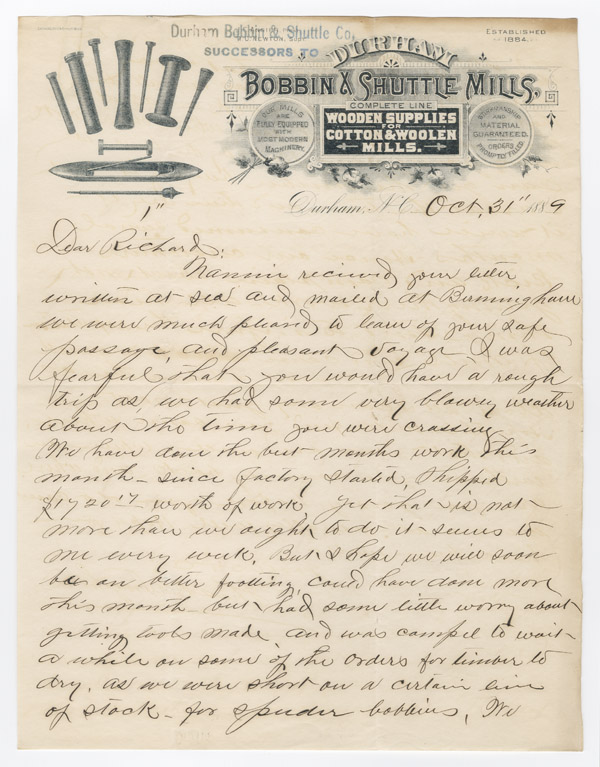 Durham Bobbin & Shuttle Co.
SUCCESSORS TO
ESTABLISHED
1884.
DURHAM
BOBBIN & SHUTTLE MILLS,
COMPLETE LINE
WOODEN SUPPLIES
FOR
COTTON & WOOLEN
MILLS.
OUR MILLS
ARE
FULLY EQUIPPED
WITH
MOST MODERN
MACHINERY.
WORKMANSHIP
AND
MATERIAL
GUARANTEED.
ORDERS
PROMPTLY FILLED.
Durham, N.C. Oct, 31" 1889
1"
Dear Richard;
Nannie recieved your letter
written at sea and mailed at Birmingham
we were much pleased to learn of your safe
passage, and pleasant voyage I was
fearful that you would have a rough
trip as, we had some very blowey weather
about the time you were crassing
We have done the best months work this
month - since factory started, shipped
$1720.17 worth of work, Yet that is not
more than we ought to do it seems to
me every week, But I hope we will soon
be on better footting, could have done more
this month but had some little worry about
getting tools made, and was compel to wait
a while on some of the orders for timber to
dry, as we were short on a certain line
of stock - for speeder bobbins, We